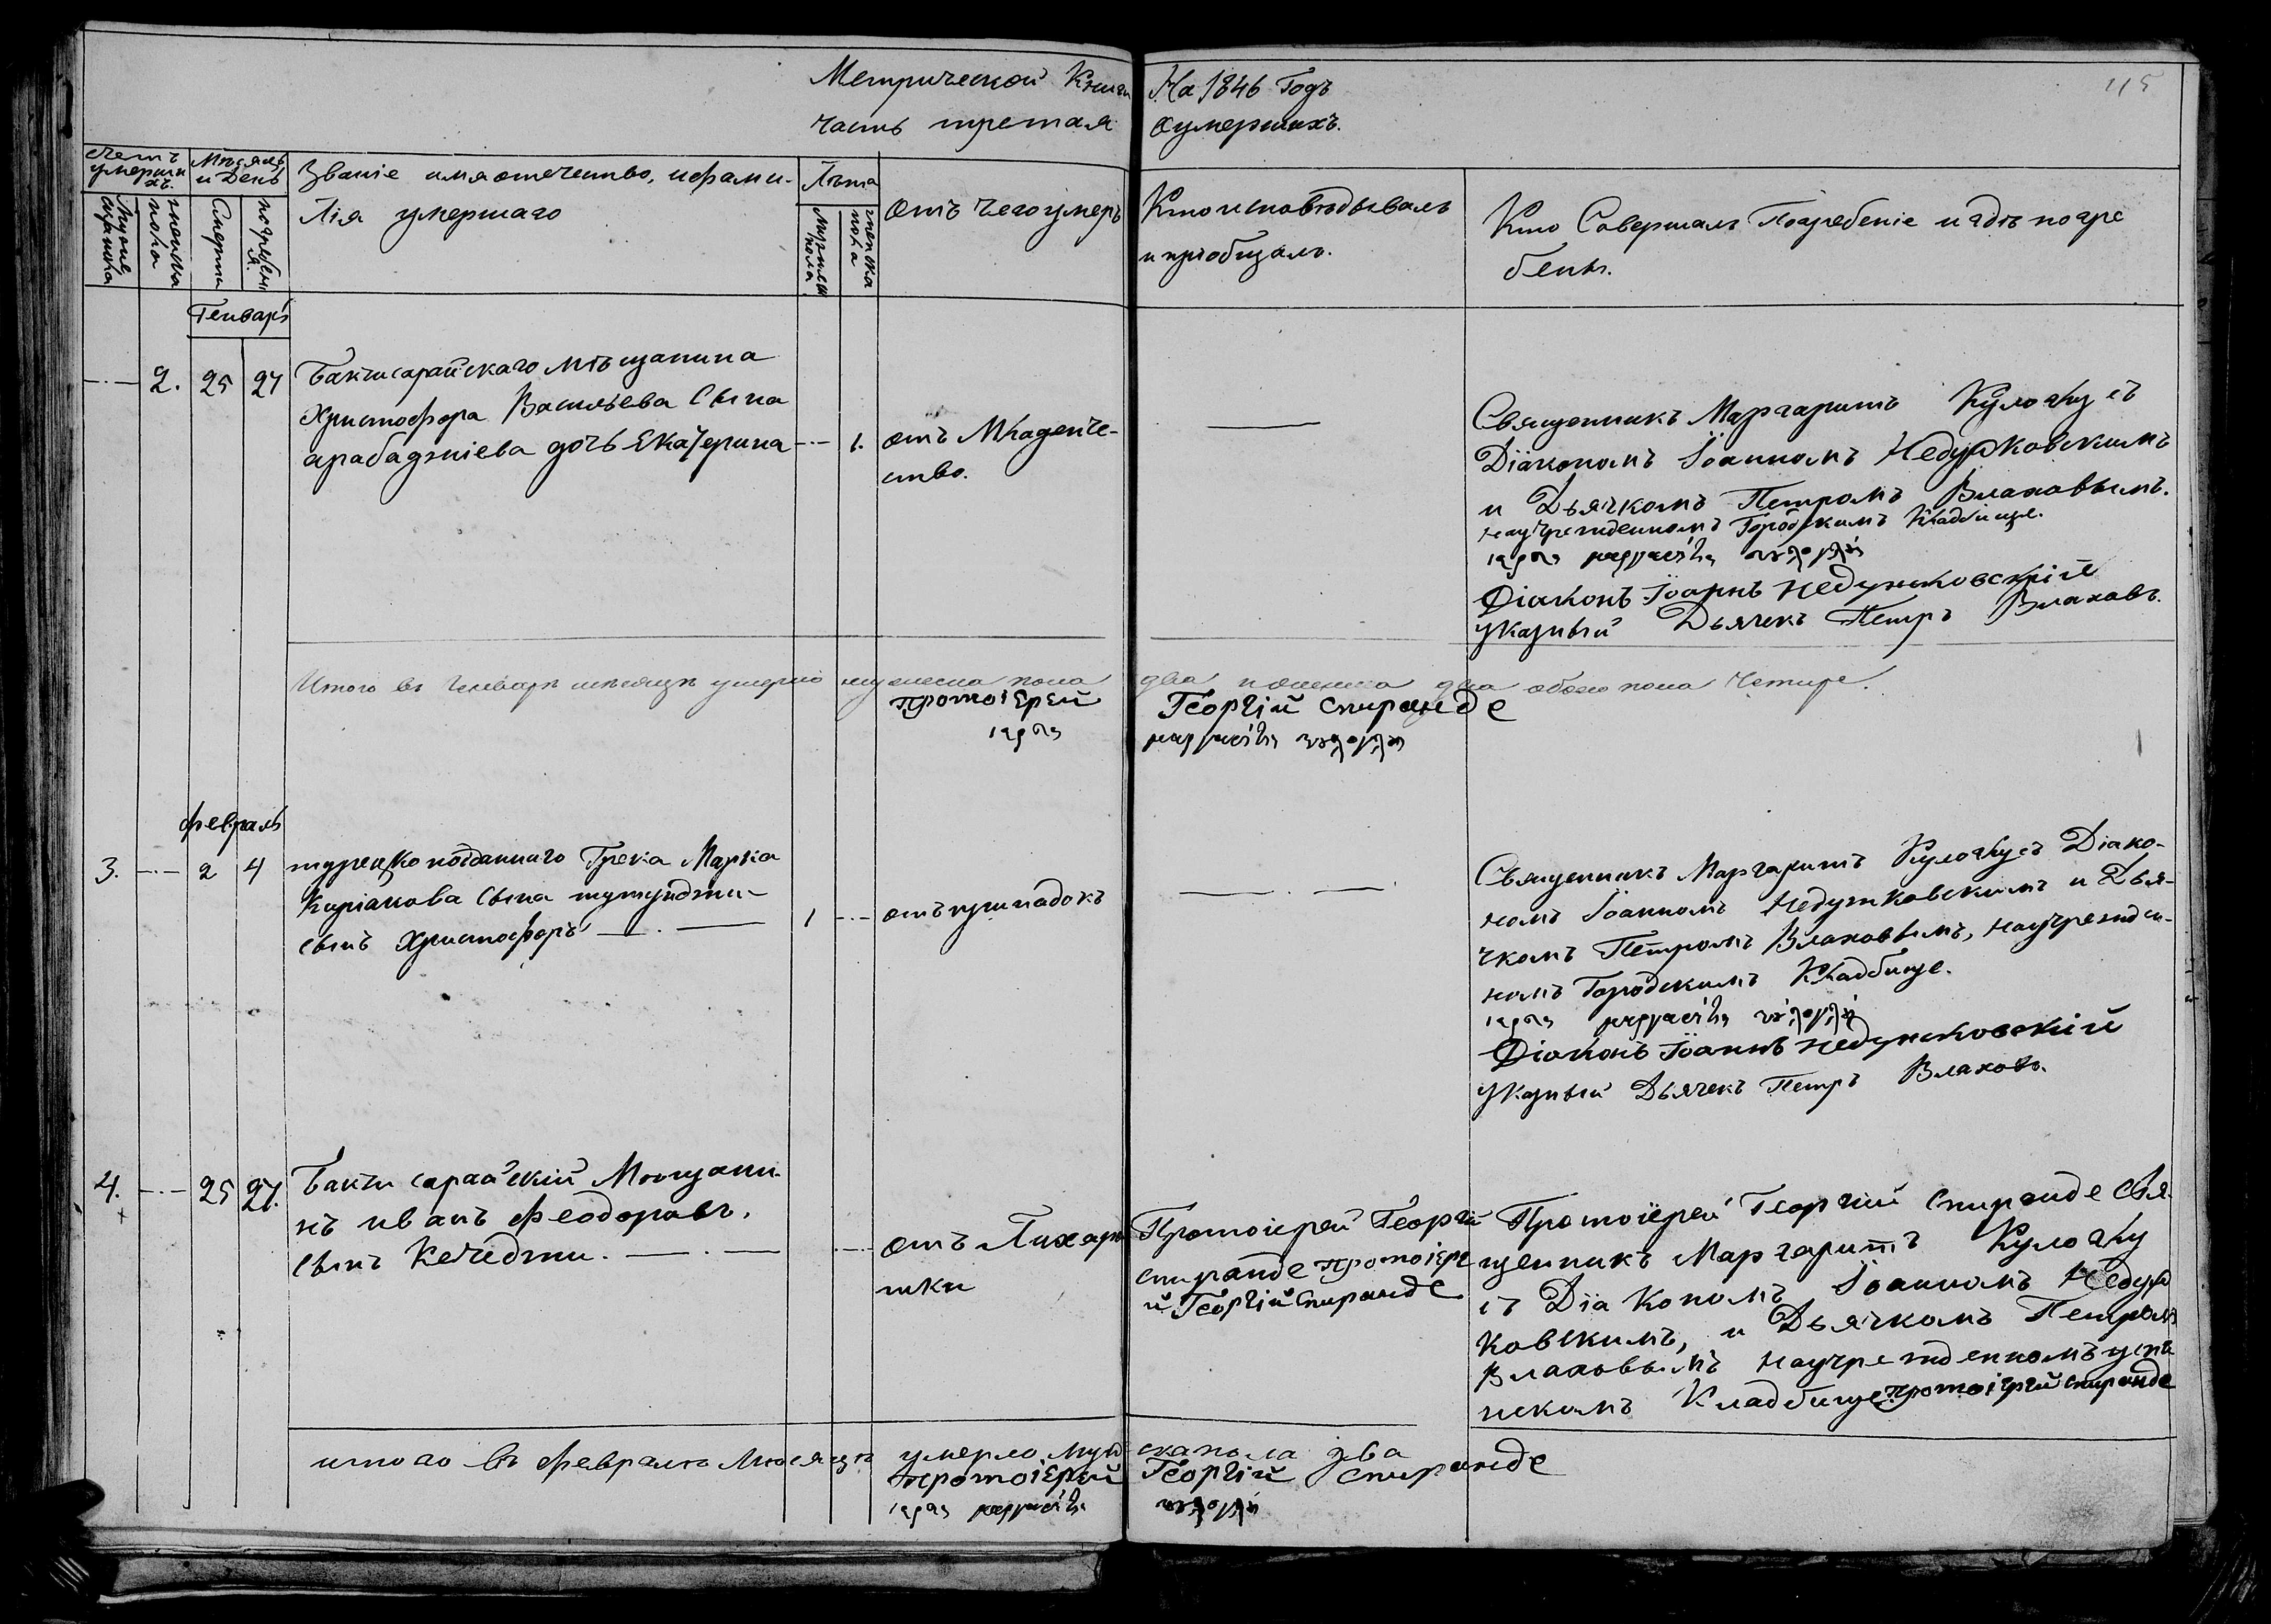 Метрической Книги На 1846 Годъ
часть третая о умершихъ.
115
Счетъ умерши хъ.
Мужеска
женска пола
Мѣсяцъ и День
Смерти
погребенія
Званіе имя отечество, и фами-
лія умершаго
Лѣта
Мужеск пола
женска пола
отъ чего умеръ
Кто исповѣдывалъ
и пріобщалъ.
Кто Совершалъ Погребеніе и гдѣ погре
бены.
Генварь
2. 25 27
Бакчисарайскаго мѣщанина
Христофора Васильева Сына
арабаджіева дочь Екатерина
1.
отъ Младенче-
ство.
Священникъ Маргаритъ Кулогку съ
Діакономъ Іоанномъ Недужковскимъ
и Дьячкомъ Петромъ Влаховымъ.
на учрежденномъ Городскимъ Кладбище.
Діаконъ Іоаннъ Недужковскрій
указный Дьячекъ Петръ Влаховъ.
Итого въ Генварѣ мѣсяцѣ умерло мужеска пола два женска два обоего пола Четире.
протоіерей Георгій Спиранде
февраль
3. 2 4
турецко подданнаго Грека Марка
Киріакова Сына тутунджи
сынъ Христофоръ
1
отъ припадокъ
Священникъ Маргаритъ Кулогку съ Діако-
номъ Іоанномъ Недужковскимъ и Дья-
чкомъ Петромъ Влаховымъ, на учрежден-
номъ Городскимъ Кладбище.
Діаконъ Іоаннъ Недужковскій
указный Дьячекъ Петръ Влаховъ.
4. 25 27.
Бакчисарайскій Мѣщани-
нъ иванъ Феодоровъ.
сынъ Кечеджи.
отъ Лихора
тки
Протоіерей Георгій
Спиранде протоіере
й Георгій Спиранде
Протоіерей Георгій Спиранде Свя-
щенникъ Маргаритъ Кулогку
съ Діакономъ Іоанномъ Недуж
ковскимъ, и Дьячкомъ Петромъ
Влаховымъ на учрежденномъ
Кладбище. протоіерей Спиранде
итого въ февралѣ Мѣсяцѣ умерло мужеска пола два
протоіерей Георгій Спиранде